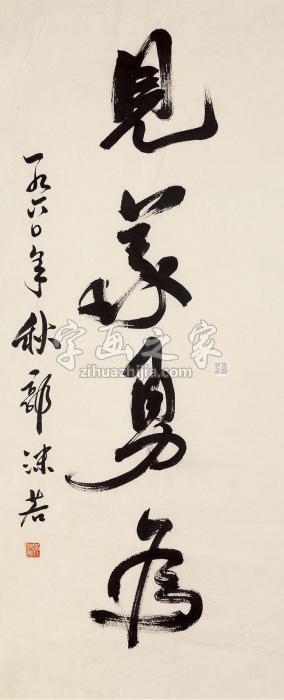 見義勇為
一九六〇年秋 郭沫若
字画之家
zihuazhijia.com